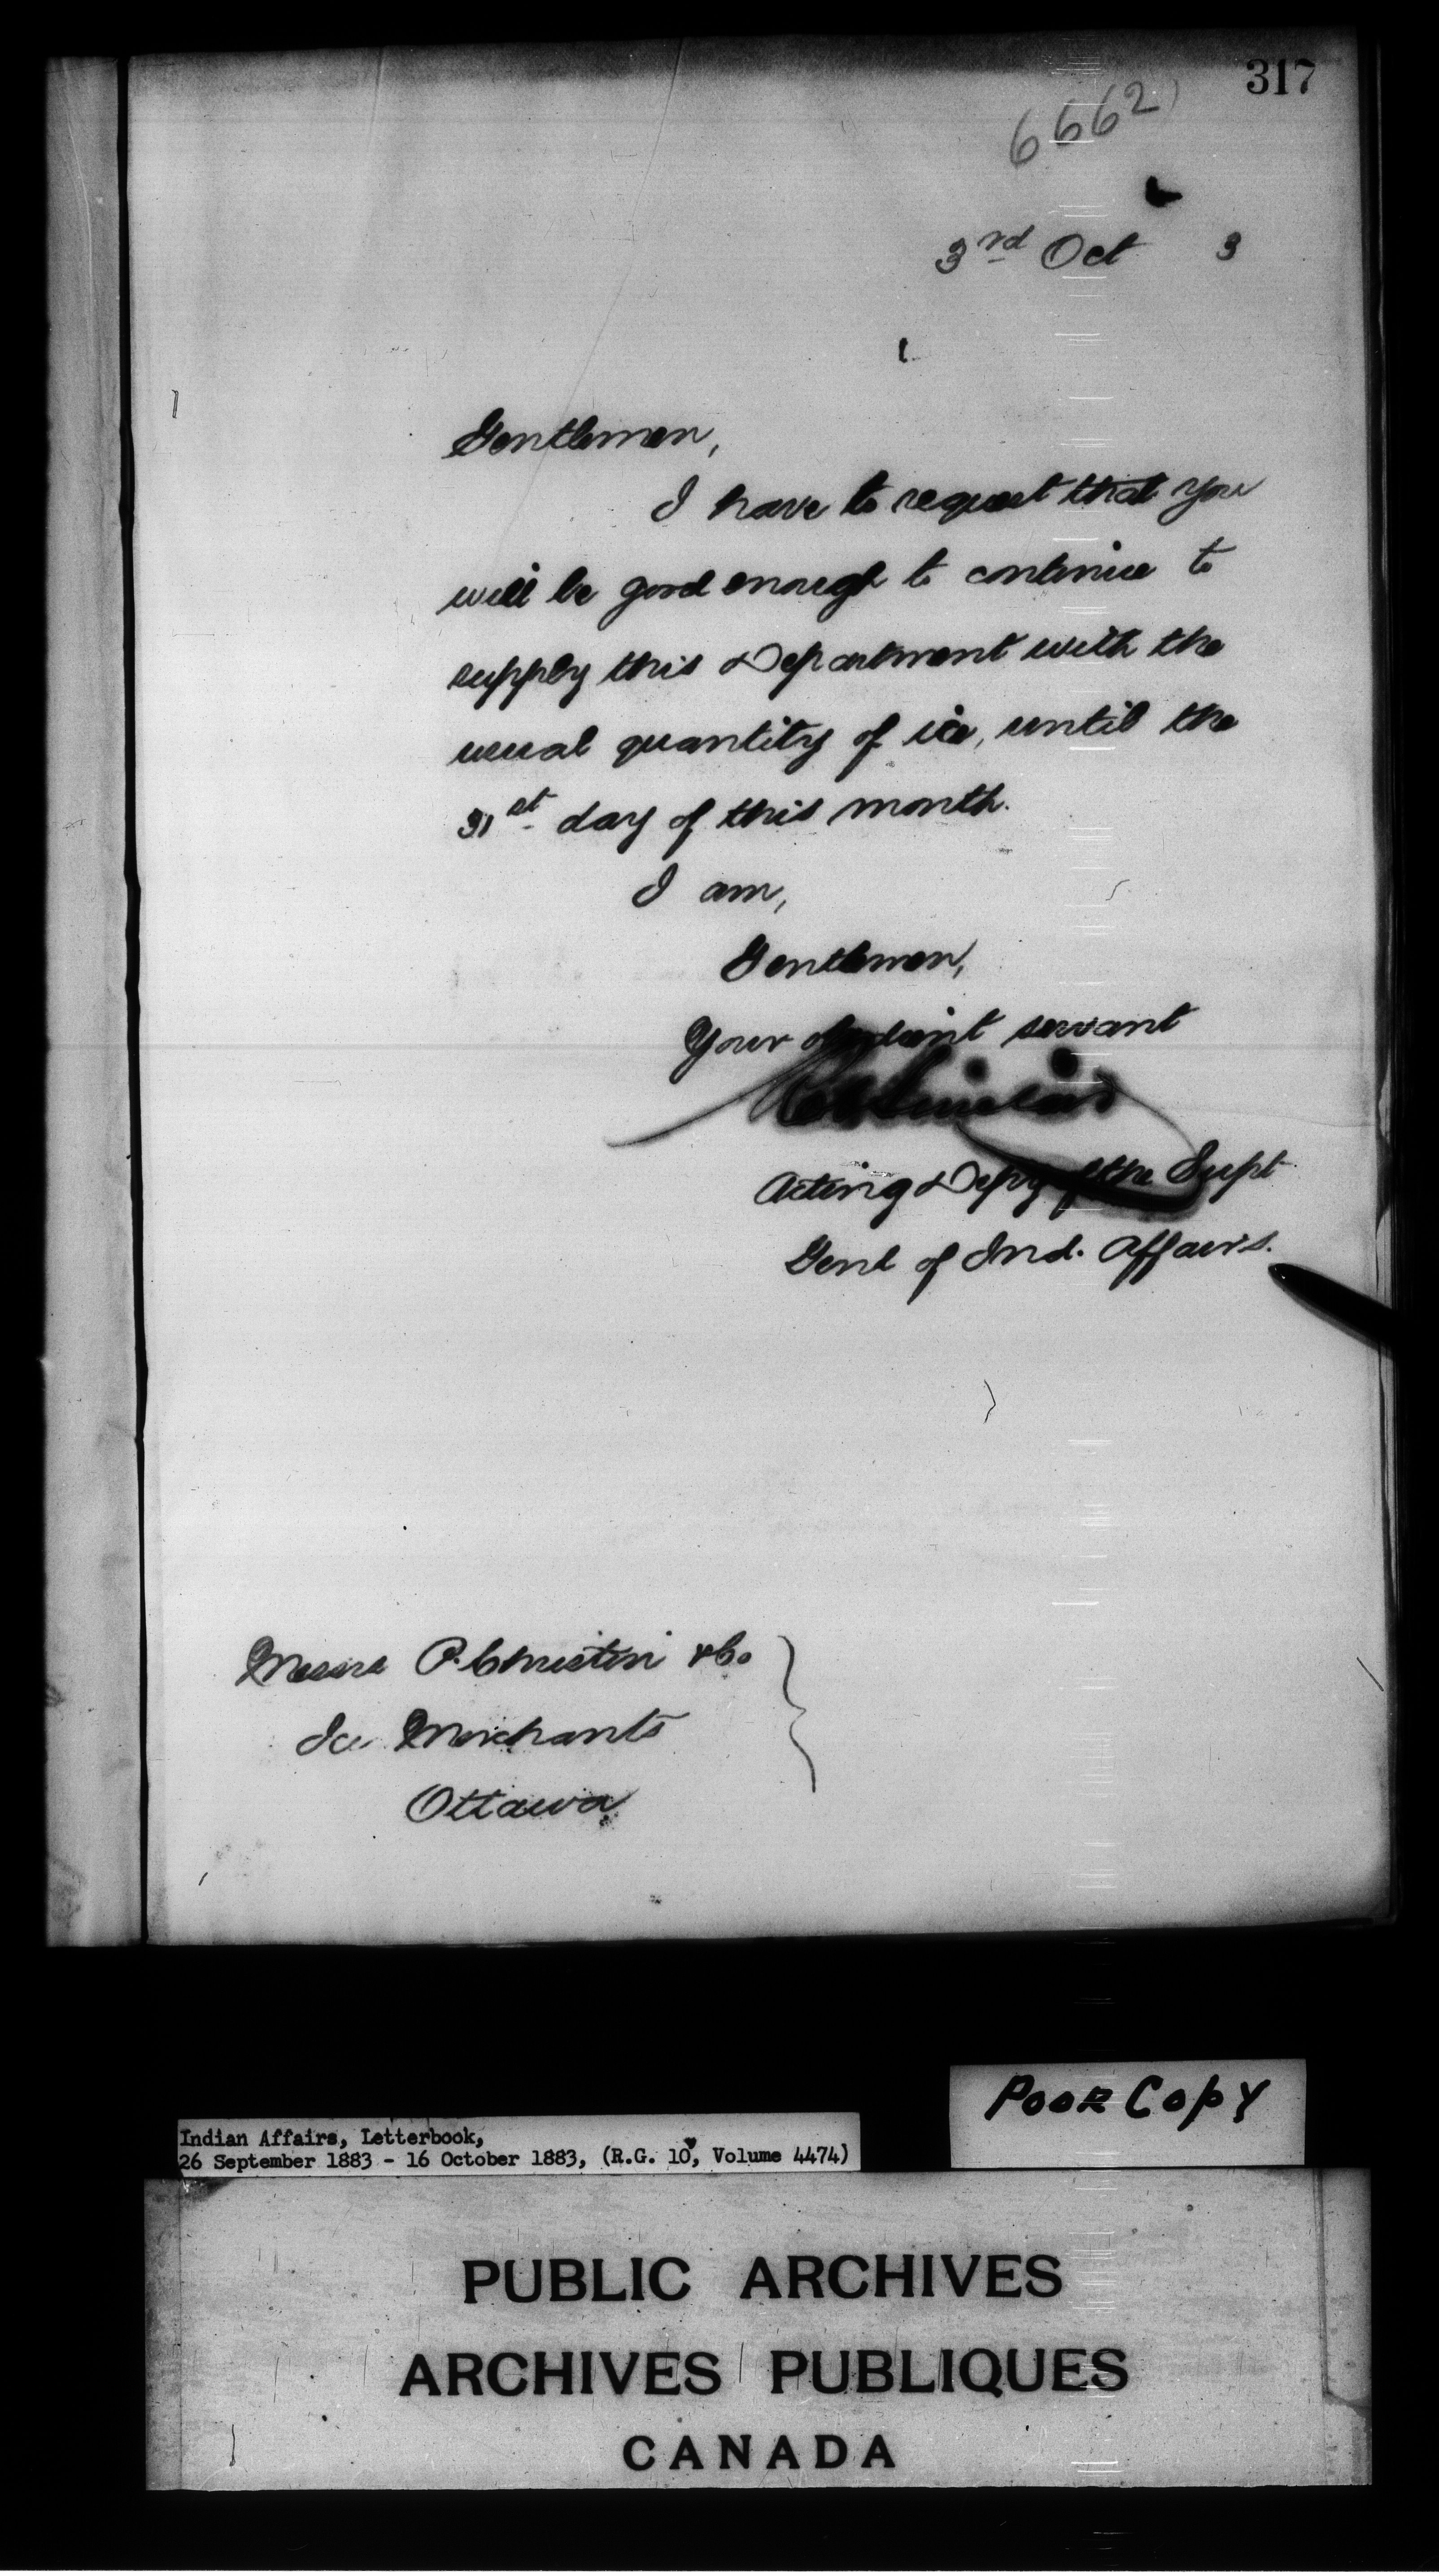 317
6662
3rd Oct 3
Gentlemen,
I have to request that you
will be good enough to continue to
supply this Department with the
usual quantity of ice, until the
31st day of this month.
I am,
Gentlemen,
Your obedient servant
Sinclair
Acting Depy of the Supt
Genl of Ind. Affairs.
Messrs P. Christin & Co
Ice Merchants
Ottawa
Poor Copy
Indian Affairs, Letterbook,
26 September 1883 - 16 October 1883, (R.G. 10, Volume 4474)
PUBLIC ARCHIVES
ARCHIVES PUBLIQUES
CANADA